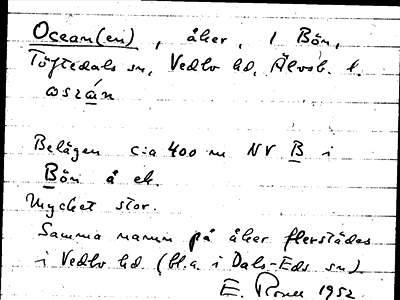 Ocean(en), åker, 1 Bön,
Töftedals sn, Vedbo hd, Älvsb. l.
oszán
Belägen c:a 400 m NV B i
Bön å ek.
Mycket stor.
Samma namn på åker flerstädes
i Vedbo hd (bl.a. i Dals-Eds sn)
E. 1952